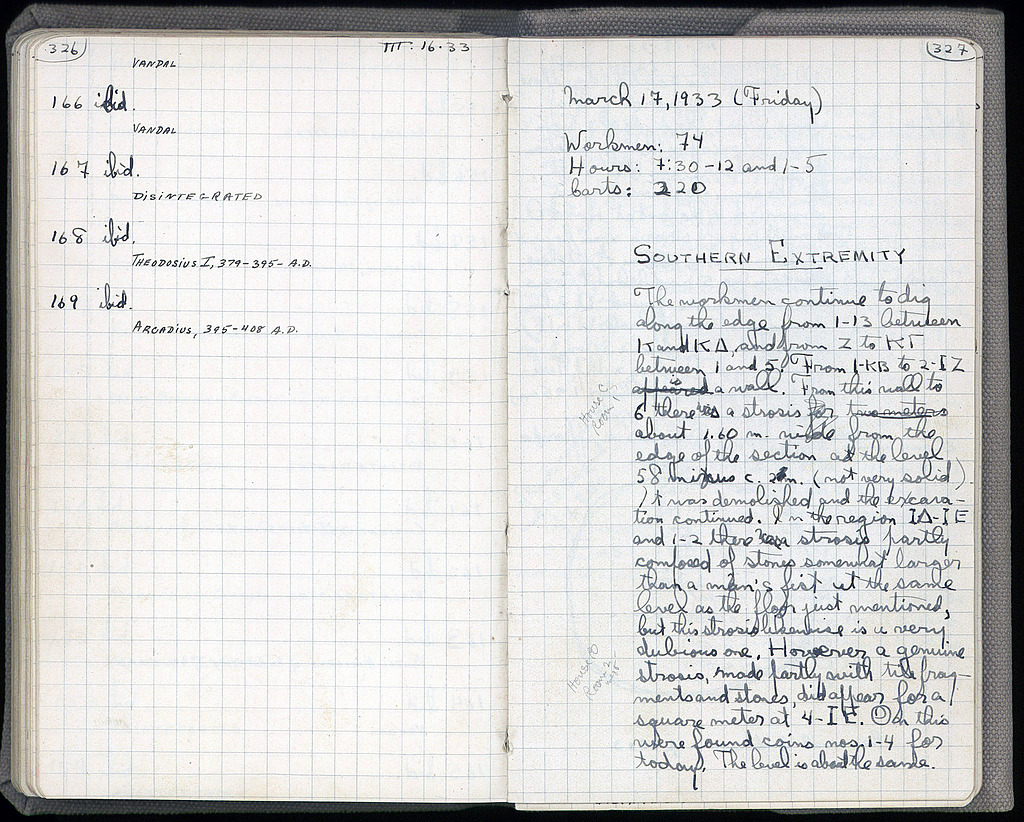 326
III: 16-33
VANDAL
166 ibid.
VANDAL
167 ibid.
DISINTEGRATED
168 ibid.
THEODOSIUS I, 379-395- A.D.
169 ibid.
ARCADIUS, 395-408 A.D.
327
March 17, 1933 (Friday)
Workmen: 74
Hours: 7:30-12 and 1-5
Carts: 220
SOUTHERN EXTREMITY
The workmen continue to dig
along the edge from 1-13 between
K and KΔ, and from Z to KΓ
between 1 and 5. From 1-KB to 2-IZ
appeared is a wall. From this wall to
6 there is a strosis for two meters
about 1.60 m. wide from the
edge of the section at the level
58 minus c. 2 m. (not very solid).
It was demolished and the excava-
tion continued. In the region IΔ-IE
and 1-2 there was a strosis partly
composed of stones somewhat larger
than a man's fist at the same
level as the floor just mentioned,
but this strosis likewise is a very
dubious one. However a genuine
strosis, made partly with tile frag-
ments and stones, did appear for a
square meter at 4-IE. On this
were found coins nos. 1-4 for
today. The level is about the same.
House C
Room 1?
House
Room 2